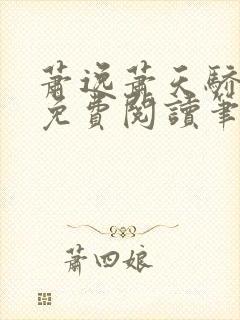 蕭逸蕭天驕
免費閱讀筆
蕭四娘